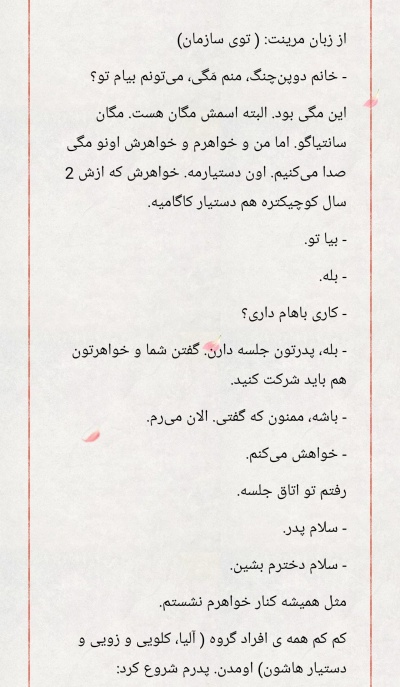 از زبان مرینت: ( توی سازمان)
- خانم دوپن‌چنگ، منم مَگی، می‌تونم بیام تو؟
این مگی بود. البته اسمش مگان هست. مگان
سانتیاگو. اما من و خواهرم و خواهرش اونو مگی
صدا می‌کنیم. اون دستیارمه. خواهرش که ازش 2
سال کوچیکتره هم دستیار کاگامیه.
- بیا تو.
- بله.
- کاری باهام داری؟
- بله، پدرتون جلسه دارن. گفتن شما و خواهرتون
هم باید شرکت کنید.
- باشه، ممنون که گفتی. الان می‌رم.
- خواهش می‌کنم.
رفتم تو اتاق جلسه.
- سلام پدر.
- سلام دخترم بشین.
مثل همیشه کنار خواهرم نشستم.
کم کم همه ی افراد گروه ( آلیا، کلویی و زویی و
دستیار هاشون) اومدن. پدرم شروع کرد: